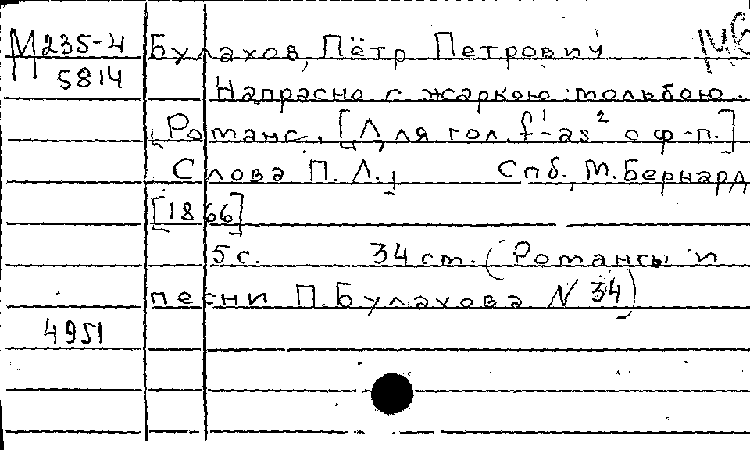 М 235-4 Булахов, Пётр Петрович
П 5814
Напрасно с жаркою мольбою.
Романс. [Для гол. f¹-as² с ф-п.]
Слова П. Л., Спб., М. Бернард
[1866]
5 с. 34 см. (Романсы и
песни П. Булахова N 34)
4951